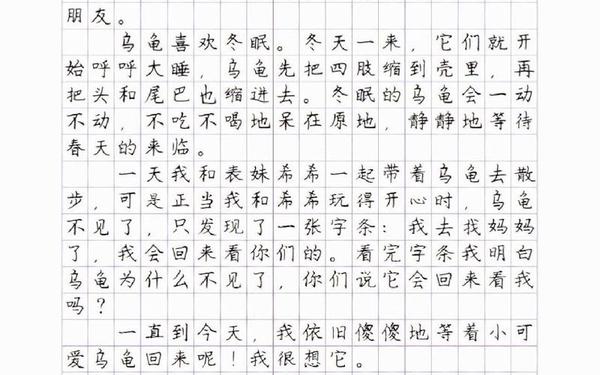 朋友。
乌龟喜欢冬眠。冬天一来，它们就开
始呼呼大睡，乌龟先把四肢缩到壳里，再
把头和尾巴也缩进去。冬眠的乌龟会一动
不动，不吃不喝地呆在原地，静静地等待
春天的来临。
一天我和表妹希希一起带着乌龟去散
步，可是正当我和希希玩得开心时，乌龟
不见了，只发现了一张字条：我去找妈妈
了，我会回来看你们的。看完字条我明白
乌龟为什么不见了，你们说它会回来看我
吗？
一直到今天，我依旧傻傻地等着小可
爱乌龟回来呢！我很想它。